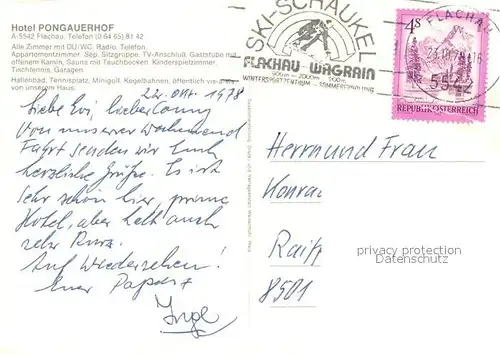 Hotel PONGAUERHOF
A-5542 Flachau, Telefon (0 64 65) 81 42
Alle Zimmer mit DU/WC. Radio, Telefon.
Appartementzimmer. Sep. Sitzgruppe, TV-Anschluß, Gaststube mit
offenem Kamin, Sauna mit Tauchbecken. Kinderspielzimmer,
Tischtennis, Garagen.
Hallenbad, Tennisplatz, Minigolf, Kegelbahnen, öffentlich
von unserem Haus.
SKI-SCHAUKEL
FLACHAU-WAGRAIN
900m — 2000m
WINTERSPORTZENTRUM - SOMMER
FLACHAU
5542
4S
REPUBLIK ÖSTERREICH
22. Okt. 1978
Liebe Evi, lieber Conny
Von unserer Wochenend
Fahrt senden wir Euch
herzliche Grüße. Es ist
sehr schön hier, prima
Hotel, aber halt auch
sehr kurz.
Auf Wiedersehen!
Euer Papa +
Inge
Herrn und Frau
Konrad
8501
privacy protection
Datenschutz